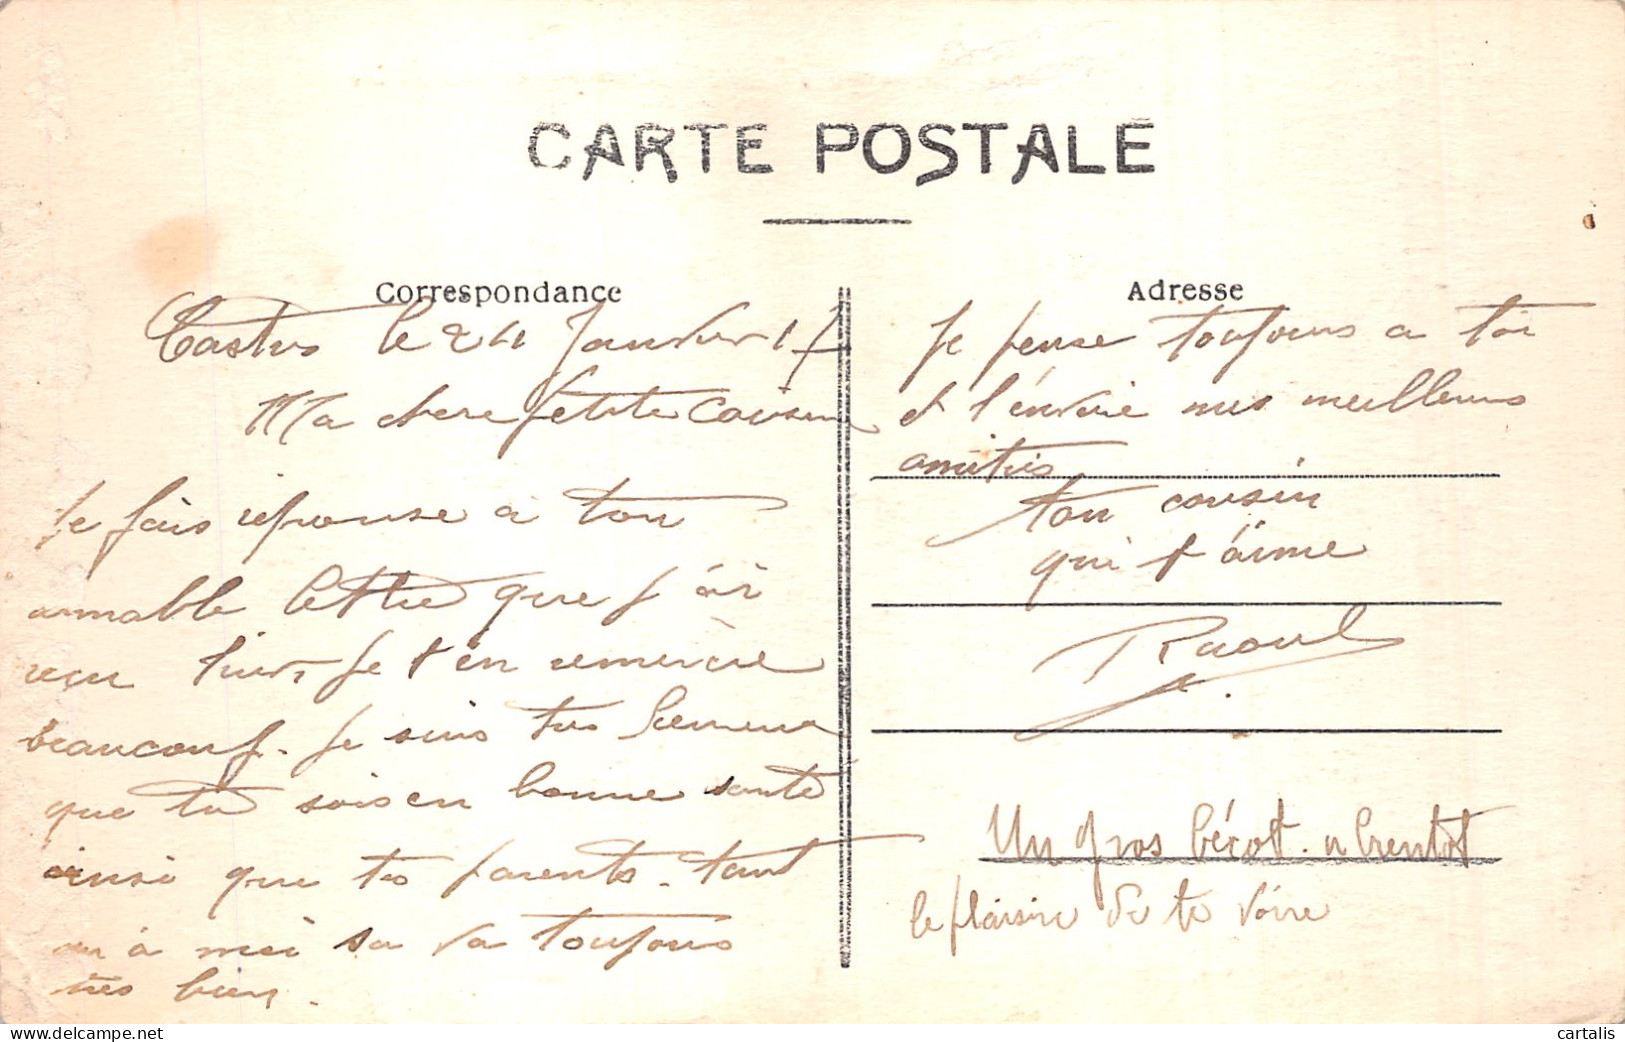 CARTE POSTALE
Correspondance
Castres le 24 Janvier 17
Ma chere petite cousine
Je fais réponse à ton
aimable lettre que j'ài
reçu hier, je t'en remercie
beaucoup. Je suis tres heureux
que tu sois en bonne santé
ainsi que tes parents. tant
qu'à moi sa va toujours
tres bien.
Adresse
Je pense toujours a toi
et t'envoie mes meilleures
amitiés
ton cousin
qui t'aime
Raoul
Un gros bécot. a bientot
le plaisire de te voire
cartalis